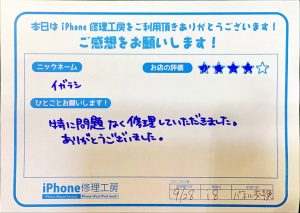 本日は iPhone 修理工房をご利用頂きありがとうございます!
ご感想をお願いします!
ニックネーム
お店の評価
イガラシ
ひとことお願いします!
特に問題なく修理していただきました。
ありがとうございました。
iPhone修理工房
9/58 i8